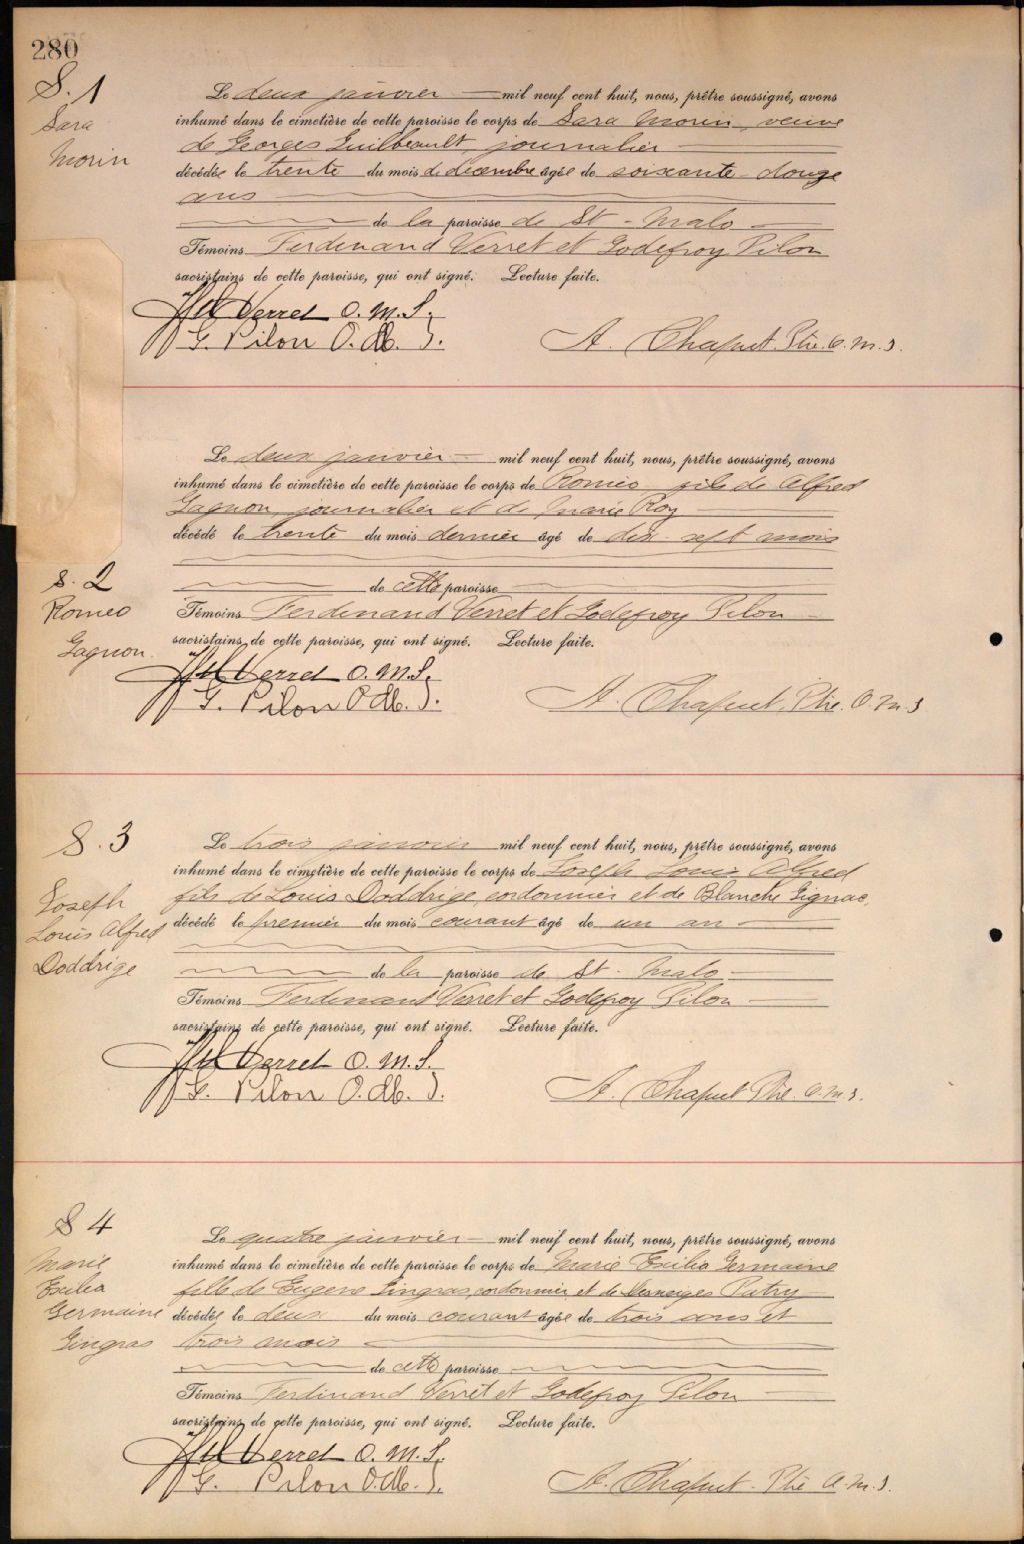 280
S. 1
Sara
Morin
Le deux janvier mil neuf cent huit, nous, prêtre soussigné, avons
inhumé dans le cimetière de cette paroisse le corps de Sara Morin, veuve
de Georges Guilbeault, journalier
décédée le trente du mois de décembre âgée de soixante-douze
ans
de la paroisse de St-Malo
Témoins Ferdinand Verret et Godefroy Pilon
sacristains de cette paroisse, qui ont signé. Lecture faite.
Verret O. M. I.
G. Pilon O. M. I.
A. Chaput. Ptre. O. M. I.
S. 2
Romeo
Gagnon.
Le deux janvier mil neuf cent huit, nous, prêtre soussigné, avons
inhumé dans le cimetière de cette paroisse le corps de Roméo, fils de Alfred
Gagnon, journalier et de Marie Roy
décédé le trente du mois dernier âgé de dix-sept mois
de cette paroisse
Témoins Ferdinand Verret et Godefroy Pilon
sacristains de cette paroisse, qui ont signé. Lecture faite.
Verret O. M. I.
G. Pilon O. M. I.
A. Chaput, Ptre. O. M. I
S. 3
Joseph
Louis Alfred
Doddrige
Le trois janvier mil neuf cent huit, nous, prêtre soussigné, avons
inhumé dans le cimetière de cette paroisse le corps de Joseph Louis Alfred
fils de Louis Doddrige, cordonnier et de Blanche Gignac,
décédé le premier du mois courant âgé de un an
de la paroisse de St-Malo
Témoins Ferdinand Verret et Godefroy Pilon
sacristains de cette paroisse, qui ont signé. Lecture faite.
Verret O. M. I.
G. Pilon O. M. I.
A. Chaput Ptre. O. M. I.
S 4
Marie
Exilia
Germaine
Gingras
Le quatre janvier mil neuf cent huit, nous, prêtre soussigné, avons
inhumé dans le cimetière de cette paroisse le corps de Marie Exilia Germaine
fille de Eugene Gingras, cordonnier et de Desneiges Patry
décédée le deux du mois courant âgée de trois ans et
trois mois
de cette paroisse
Témoins Ferdinand Verret et Godefroy Pilon
sacristains de cette paroisse, qui ont signé. Lecture faite.
Verret O. M. I.
G. Pilon O. M. I.
A. Chaput. Ptre O. M. I.